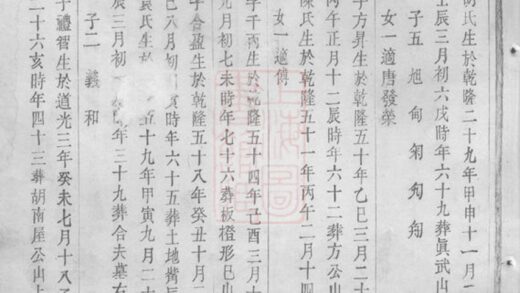 氏生於乾隆二十九年甲申十一月二
壬辰三月初六戌時年六十九葬眞武山
子五 旭 甸
女一適唐發榮
方昇生於乾隆五十年乙巳三月二
丙午正月十二辰時年六十二葬方公山
陳氏生於乾隆五十一年丙午二月十四
女一適傅
子千丙生於乾隆五十四年己酉三月十
元月初七未時年七十六葬板橙形巳山
合盈生於乾隆五十八年癸丑十月
巳八月初 時年六十五葬土地嘴辰
袁氏生於 五十九年甲寅九月二
辰三月初 年三十九葬合夫墓右
子二 義 和
子禮智生於道光三年癸未七月十八
二十六亥時年四十三葬胡南屋公山